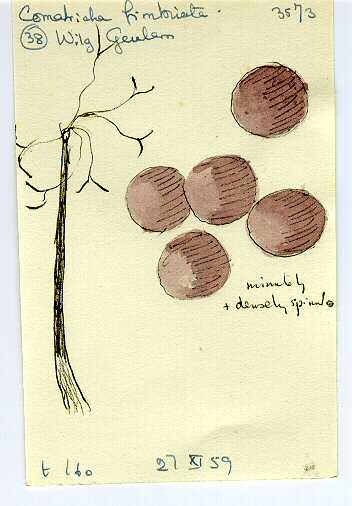 Comatricha fimbriata. 3573
38 Wilg Geulem
minutely
+ densely spinulo
t 160 27 XI 59